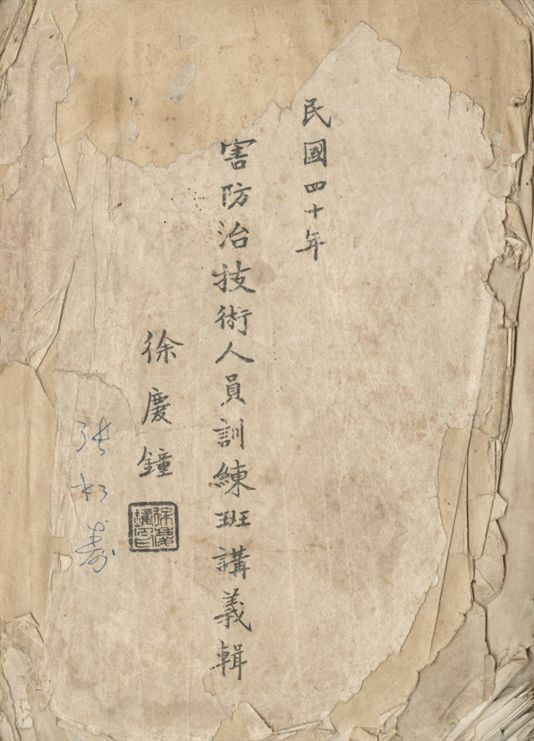 民國四十年
害防治技術人員訓練班講義輯
徐慶鐘
徐慶鐘印
張松壽